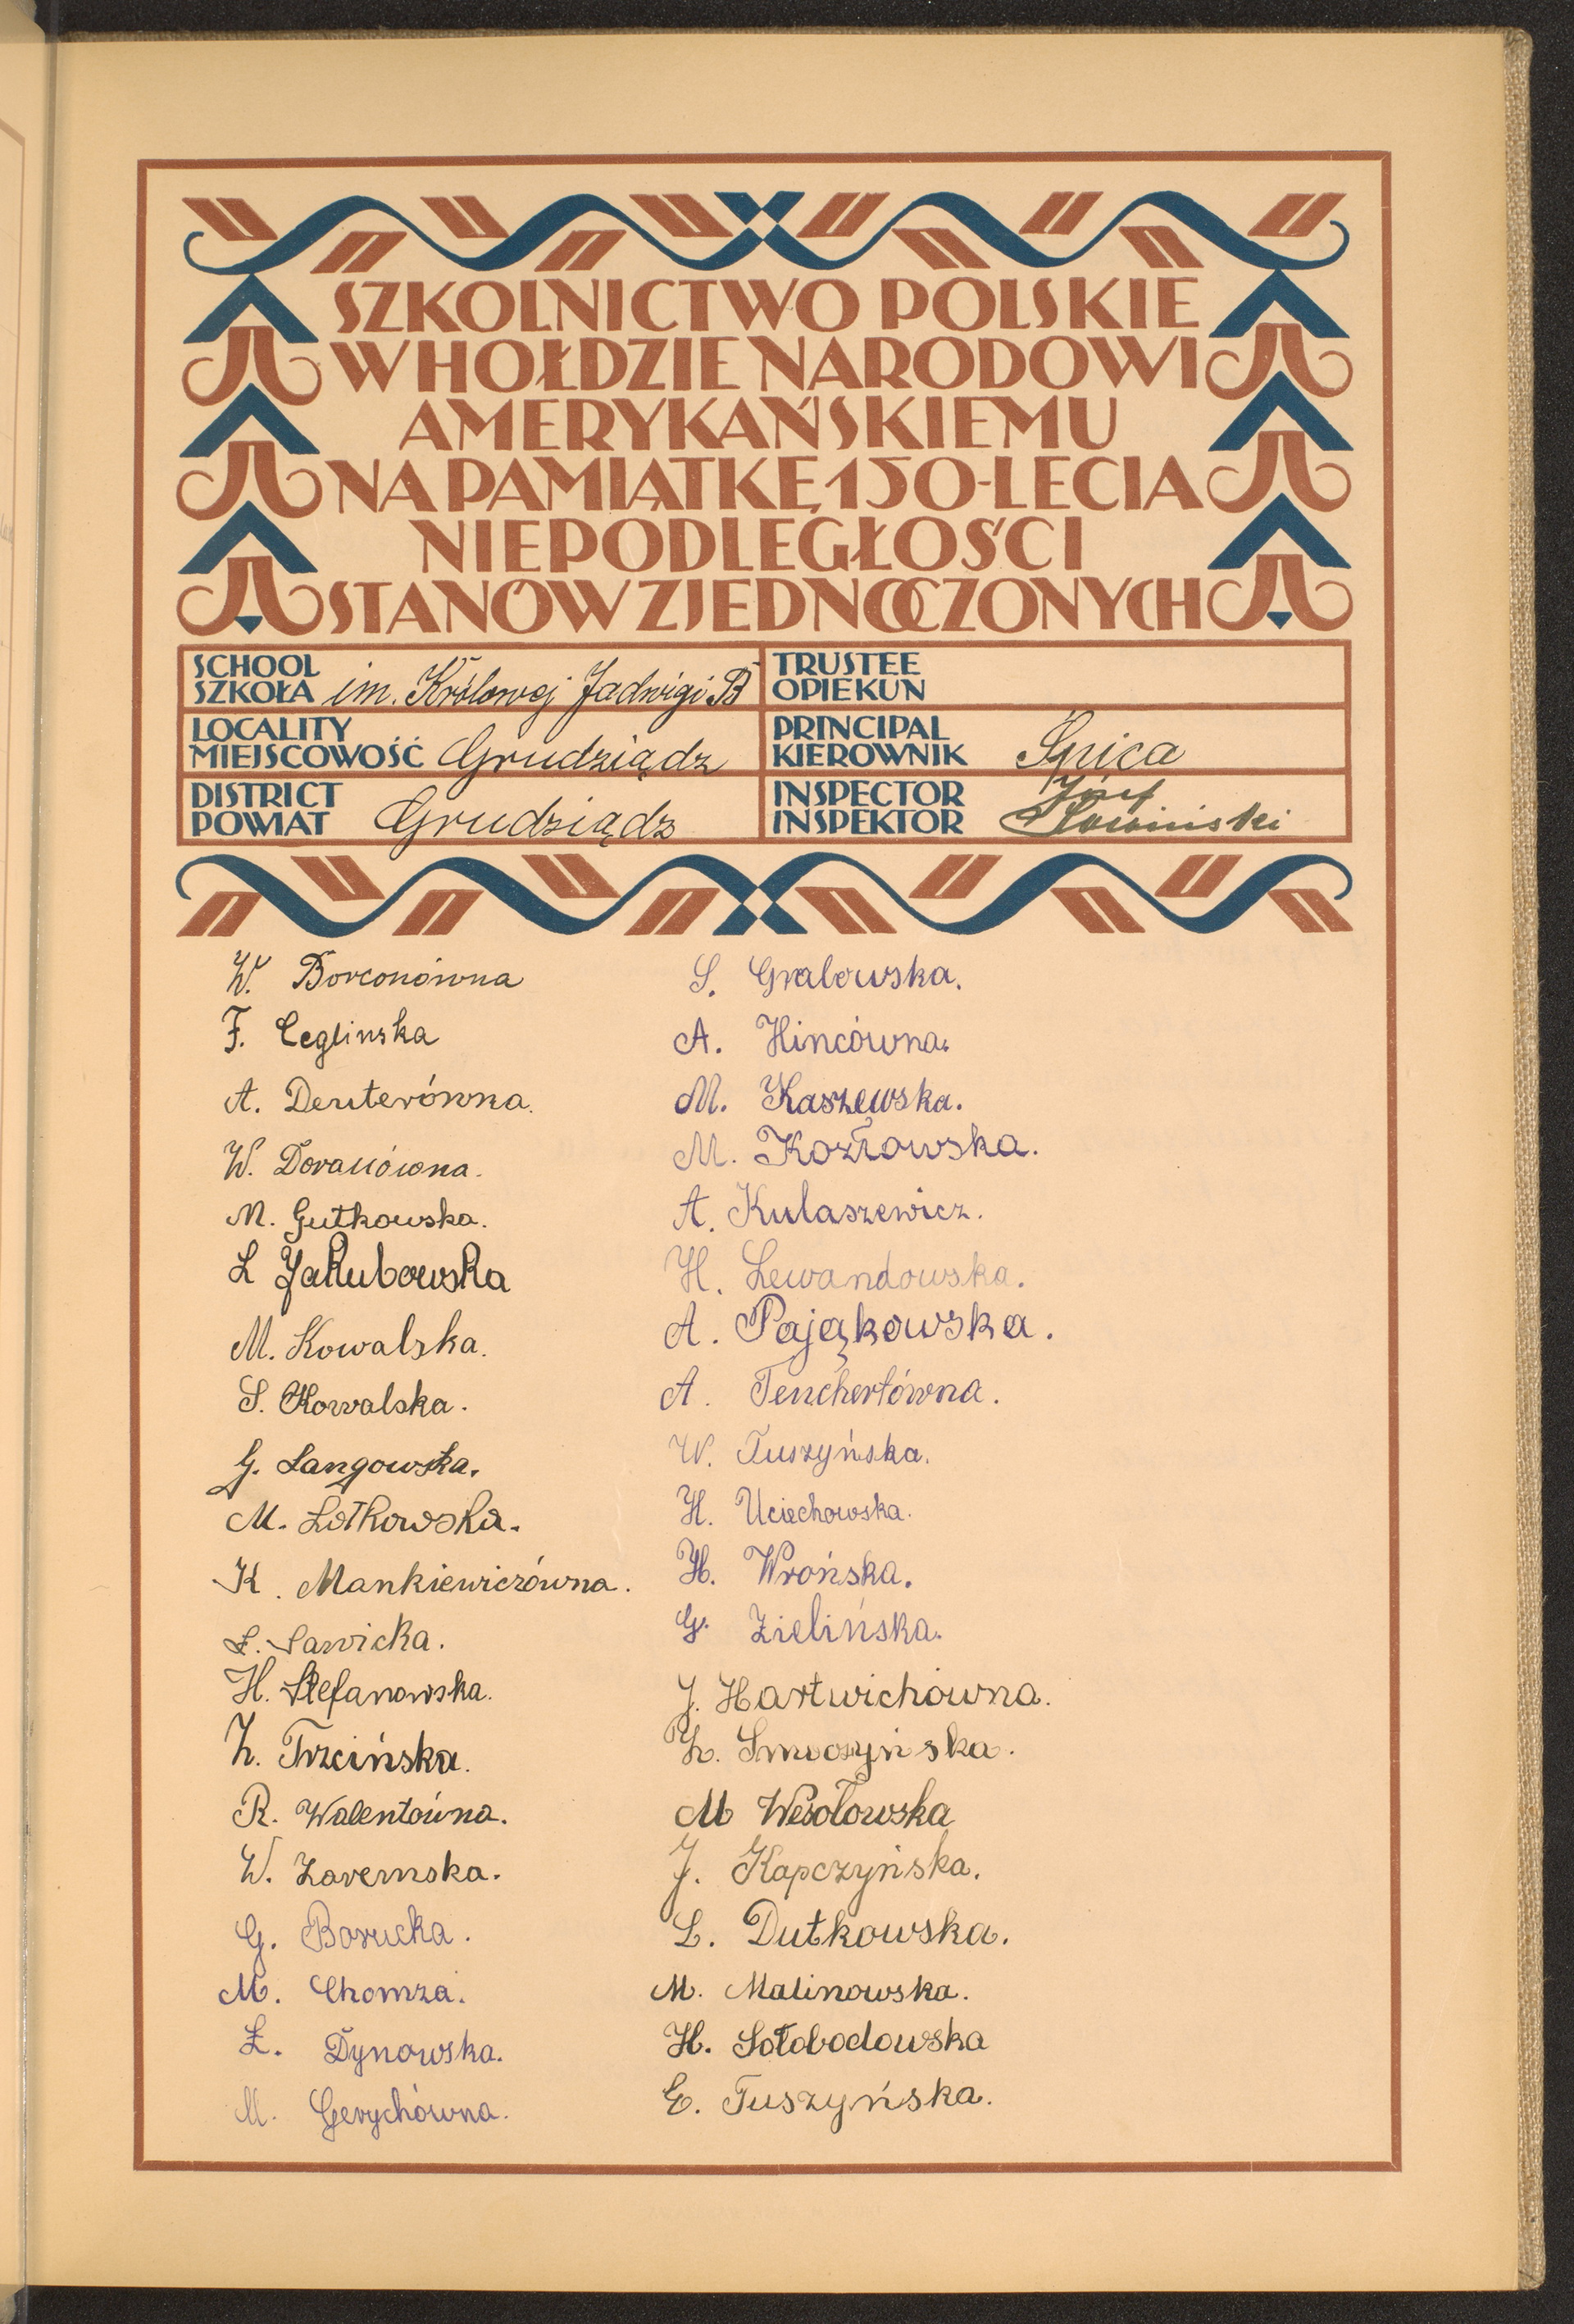 SZKOLNICTWO POLSKIE
W HOŁDZIE NARODOWI
AMERYKAŃSKIEMU
NA PAMIĄTKĘ 150-LECIA
NIEPODLEGŁOŚCI
STANÓW ZJEDNOCZONYCH
SCHOOL
SZKOŁA im. Królowej Jadwigi B
TRUSTEE
OPIEKUN
LOCALITY
MIEJSCOWOŚĆ Grudziądz
PRINCIPAL
KIEROWNIK Spica
DISTRICT
POWIAT Grudziądz
INSPECTOR
INSPEKTOR Józef
Słowiński
W. Borconówna
F. Ceglinska
A. Deuterówna.
W. Doranówna.
M. Gutkowska.
L Jakubowska
M. Kowalska.
S. Kowalska.
G. Langowska.
M. Lotkowska.
K. Mankiewiczówna.
Ł. Sawicka.
H. Stefanowska.
Z. Trzcińska.
R. Walentówna.
W. Zavernska.
G. Borucka.
M. Chomza.
Ł. Dynowska.
M. Gerychówna.
S. Grabowska.
A. Hincówna.
M. Kaszewska.
M. Kozłowska.
A. Kulaszewicz.
H. Lewandowska.
A. Pająkowska.
A. Tenchertówna.
W. Tuszyńska.
H. Uciechowska.
H. Wrońska.
G. Zielińska.
J. Hartwichówna.
Z. Smoczyńska.
M Wesołowska
J. Kapczyńska.
L. Dutkowska.
M. Malinowska.
H. Sołobodowska
E. Tuszyńska.